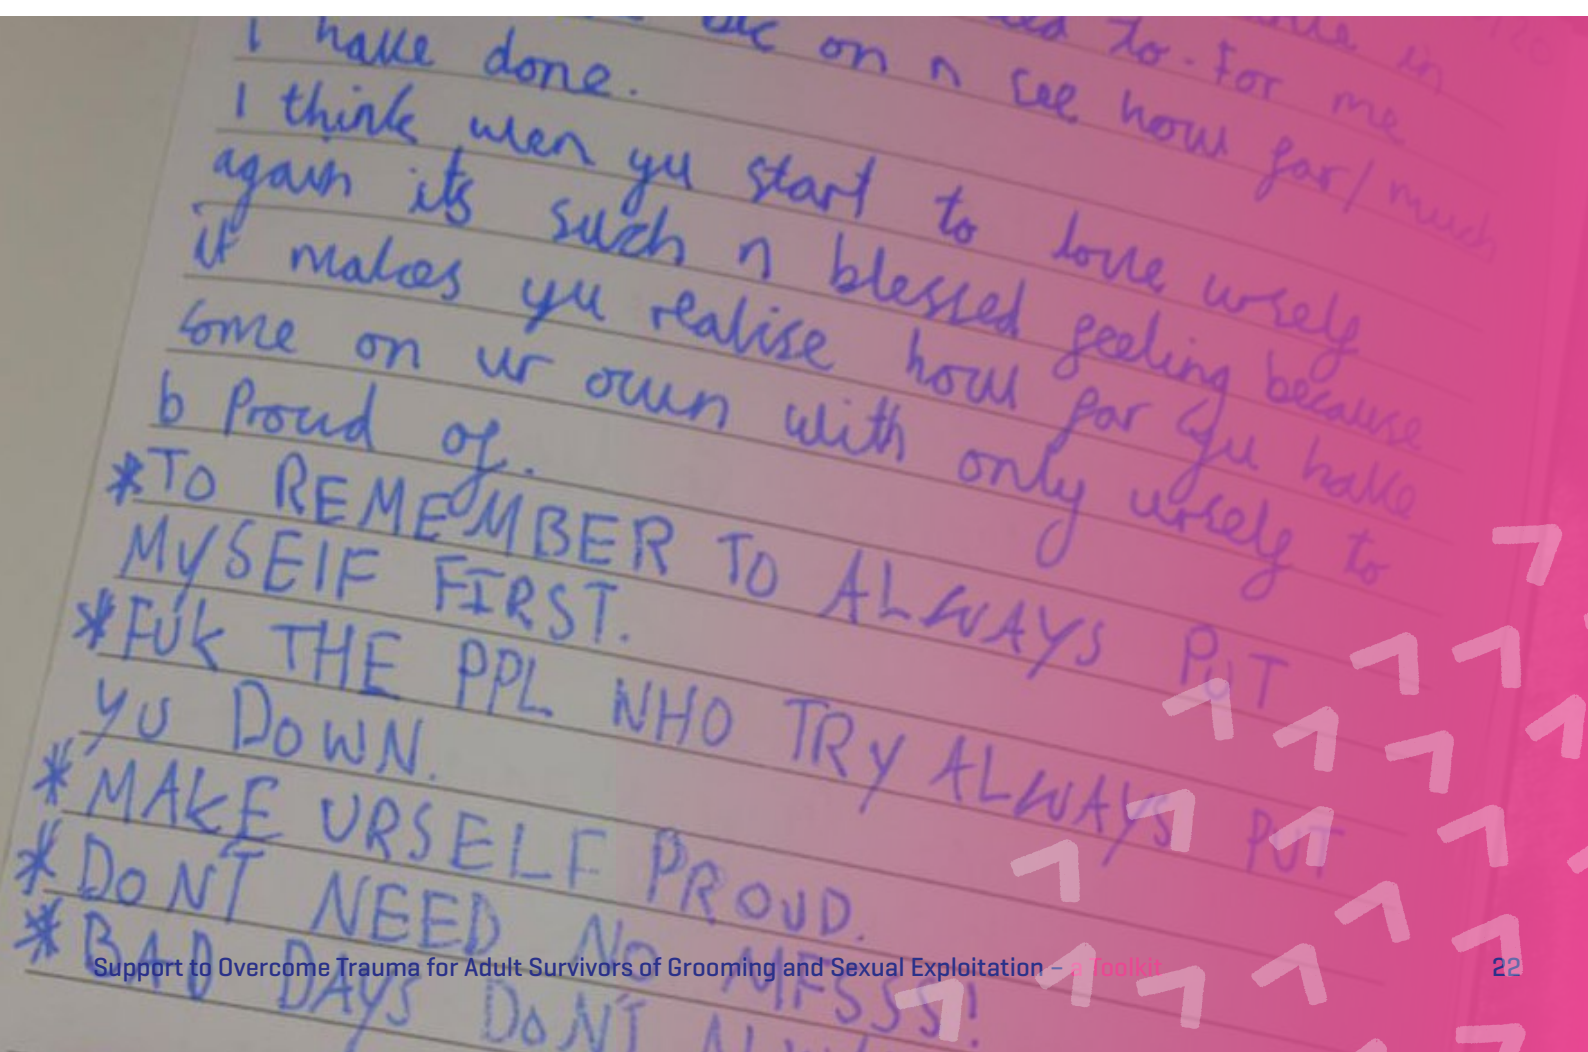 in
to. For me
I have done.
on n see how far/much
I think wen yu start to love urself
again its such n blessed feeling because
it makes yu realise how far yu have
come on ur own with only urself to
b Proud of.
*TO REMEMBER TO ALWAYS PUT
MYSElF FIRST.
*FUK THE PPL WHO TRY ALWAYS PUT
yu DOWN.
*MAKE URSELF PROUD.
*DONT NEED NO MFSSS!
*BAD DAYS DONT
Support to Overcome Trauma for Adult Survivors of Grooming and Sexual Exploitation – a Toolkit
22